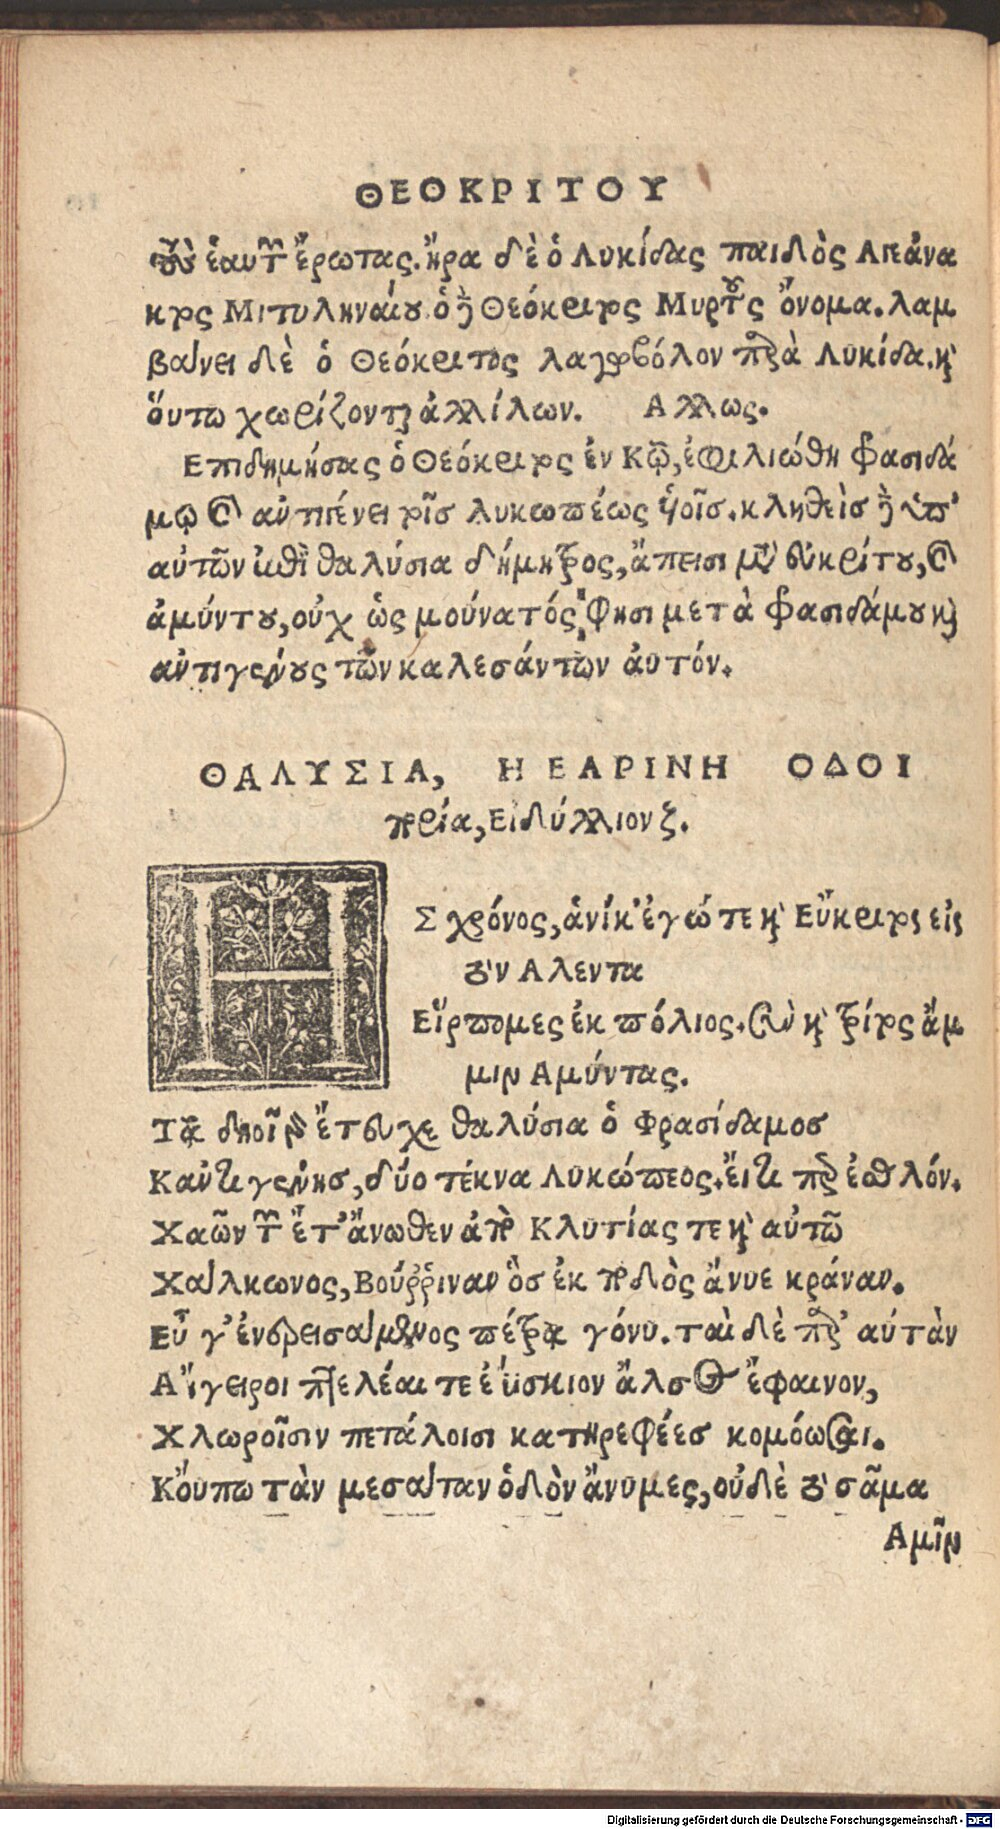 ΘΕΟΚΡΙΤΟΥ
τοὺς ἑαυτῶν ἔρωτας. ἤρα δὲ ὁ Λυκίδας παιδὸς Αγεάνα
κτος Μιτυληναίου ὁ δὲ Θεόκριτος Μυρτοῦς ὄνομα. λαμ
βαίνει δὲ ὁ Θεόκριτος λαγωβόλον παρὰ Λυκίδα. καὶ
ὅυτω χωρίζονται ἀλλίλων. Αλλως.
Επιδημήσας ὁ Θεόκριτος ἐν Κῷ, ἐφιλιώθη φασιδά
μῳ καὶ αὐτιγένει τοῖς λυκωπέως ὑοῖσ. κληθεὶσ δὲ ὑπ'
αὐτῶν ἐπὶ θαλύσια δήμητρος, ἄπεισι μετ' εὐκρίτου, καὶ
ἀμύντου, οὐχ ὡς μούνατός φησι μετὰ φασιδάμου καὶ
αὐτιγένους τῶν καλεσάντων ἀυτόν.
ΘΑΛΥΣΙΑ, Η ΕΑΡΙΝΗ ΟΔΟΙ
πορία, Ειδύλλιον ζ.
Η Σ χρόνος, ἁνίκ' ἐγώ τε καὶ Εὔκριτος εἰς
τὸν Αλεντα
Εἵρπομες ἐκ πόλιος. σὺν καὶ τρίτος ἄμ
μιν Αμύντας.
Τᾷ δηοῖ γὰρ ἔτευχε θαλύσια ὁ Φρασίδαμοσ
Καὐτιγένησ, δύο τέκνα Λυκώπεος. ἔι τι περ ἐσθλόν.
Χαῶν τῶν ἔτ' ἄνωθεν ἀπὸ Κλυτίας τε καὶ αὐτῶ
Χαίλκωνος, Βούρριναν ὃσ ἐκ ποδὸς ἄνυε κράναν.
Εὖ γ' ἐνερεισαίμενος πέτρᾳ γόνυ. ταὶ δὲ παρ' αύτὰν
Αἴγειροι πτελέαι τε ἐΰσκιον ἄλσος ἔφαινον,
Χλωροῖσιν πετάλοισι κατηρεφέεσ κομόωσαι.
Κὄυπω τὰν μεσαίταν ὁδὸν ἄνυμες, οὐδὲ τὸ σᾶμα
Αμῖν